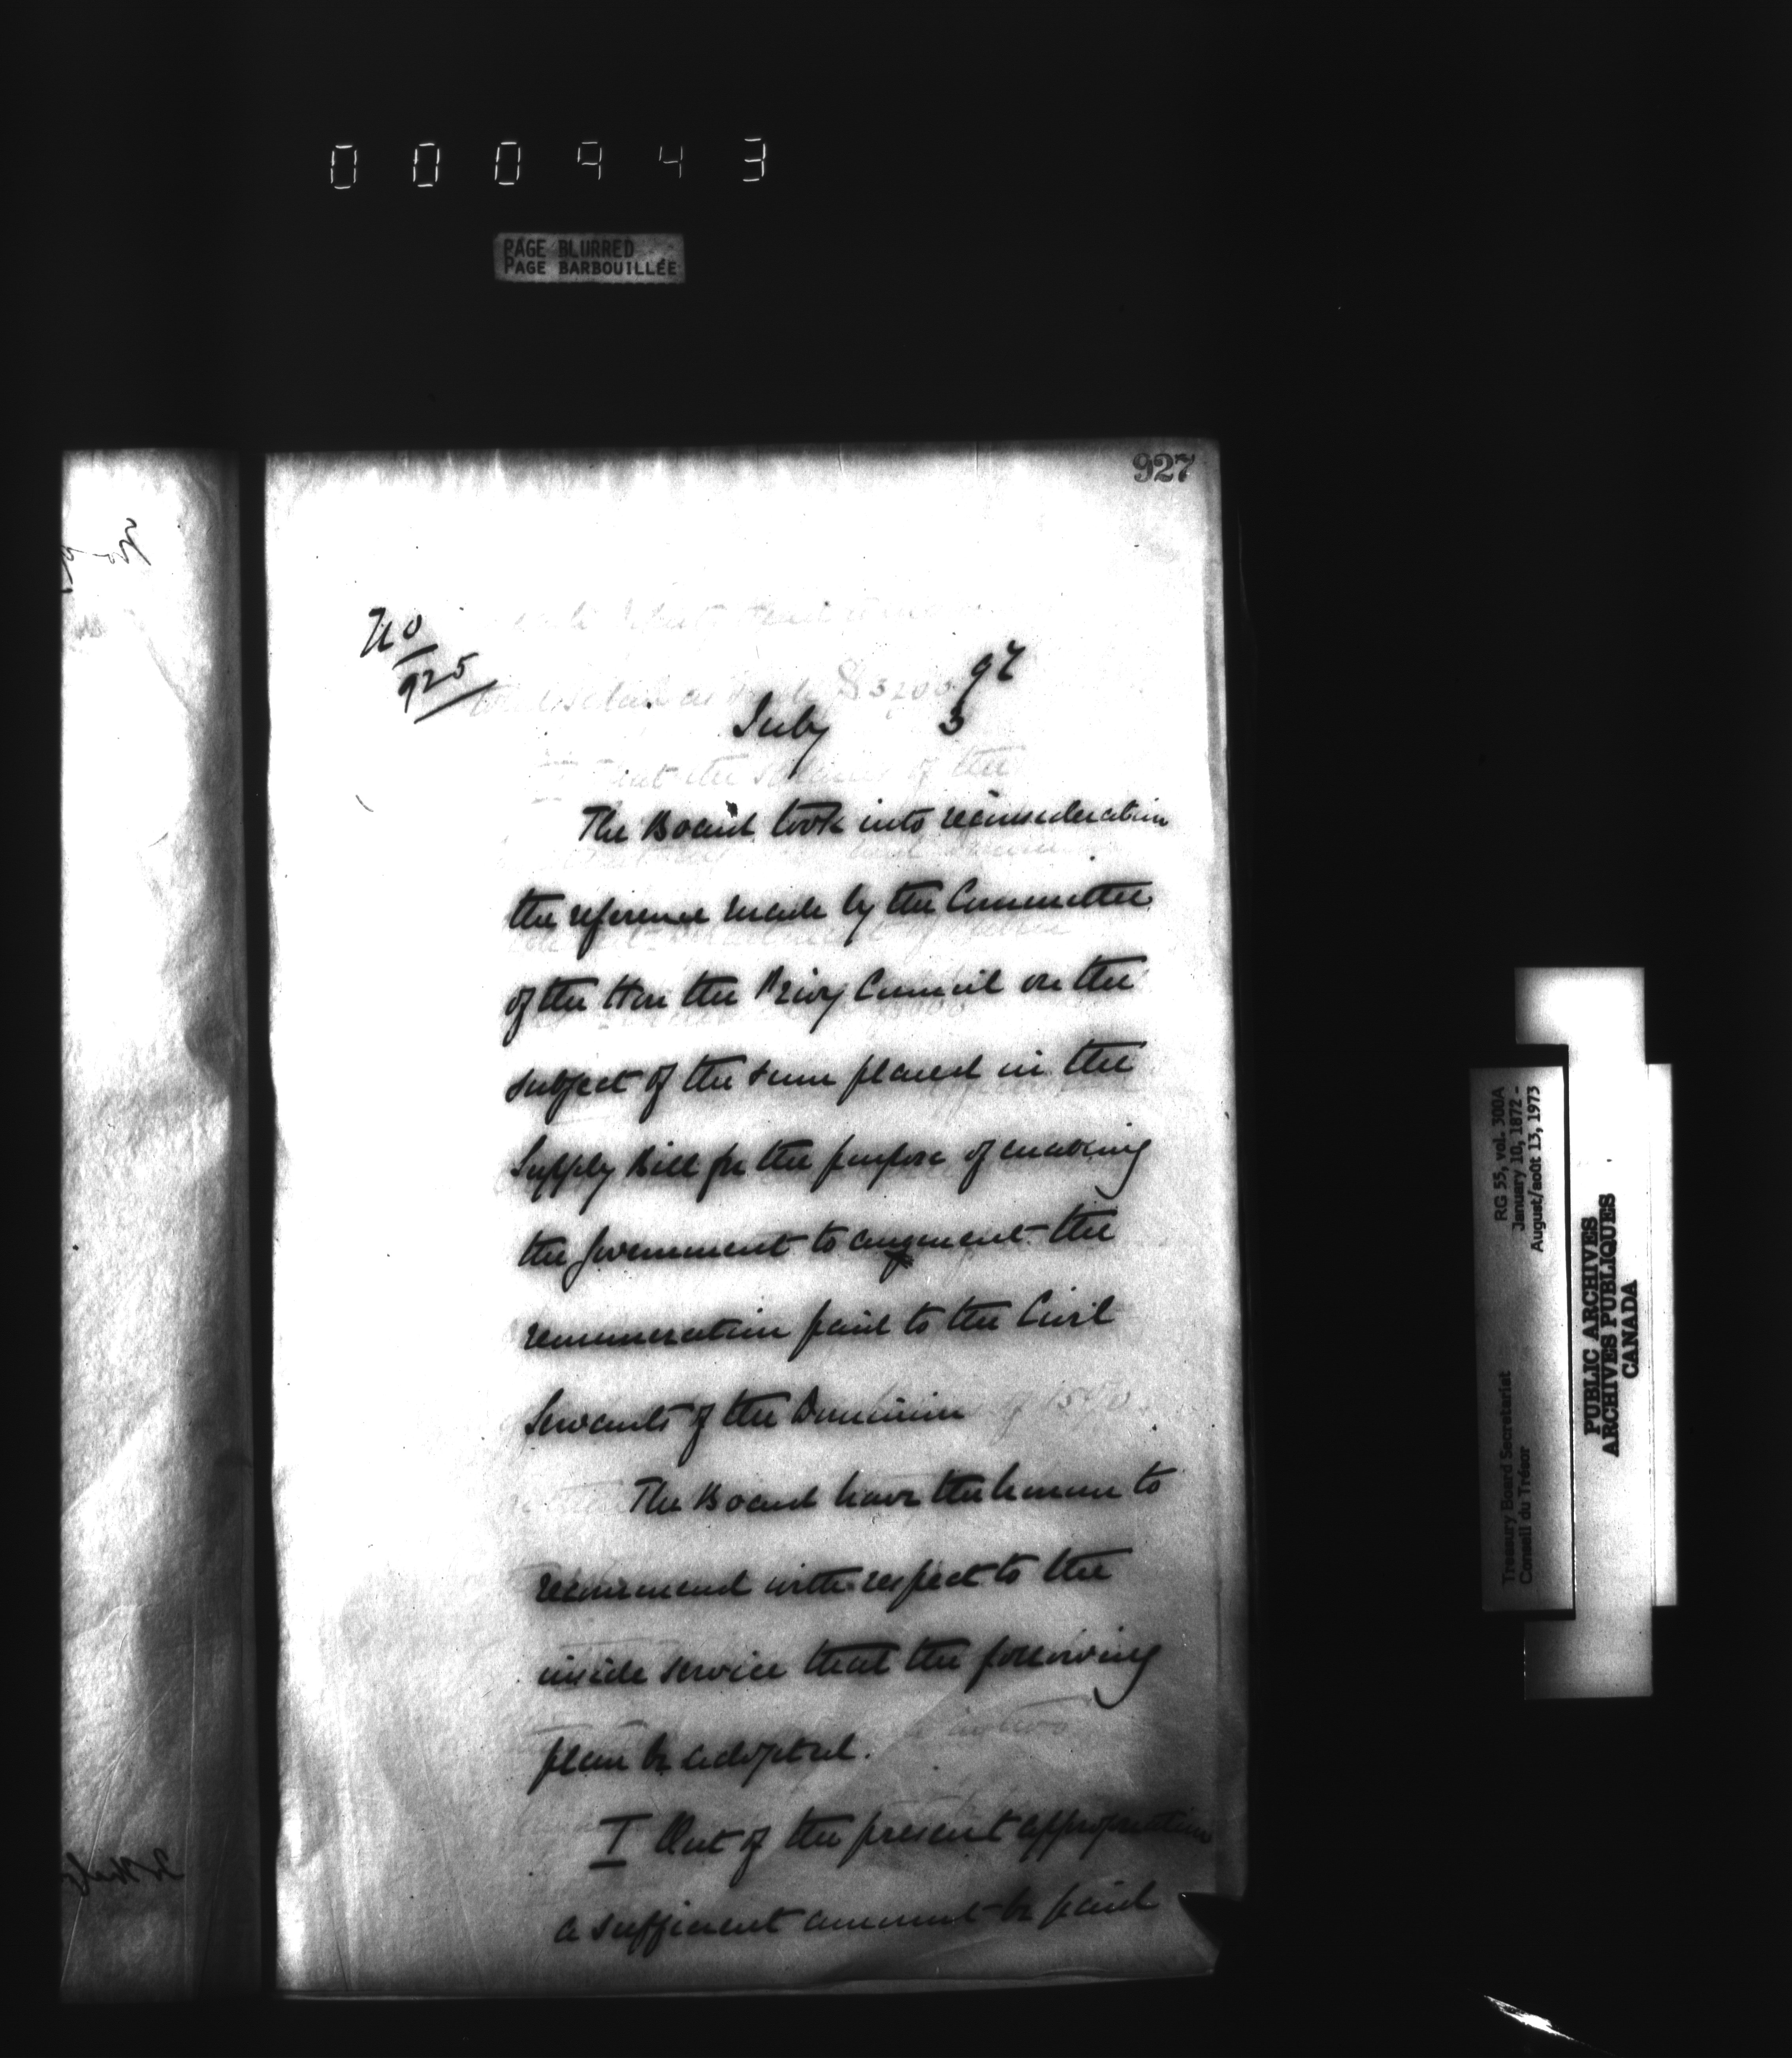 000943
PAGE BLURRED
PAGE BARBOUILLÉE
927
No
925
July 3
The Board took into reconsideration
the reference made by the Committee
of the Hon the Privy Council on the
subject of the sum placed in the
Supply Bill for the purpose of enabling
the government to augment the
remuneration paid to the Civil
Servants of the Dominion
The Board have the honour to
recommend with respect to the
inside service that the following
plan be adopted.
I Out of the present appropriation
a sufficient amount be paid
RG 55, vol. 300A
January 10, 1872 -
August/août 13, 1973
Treasury Board Secretariat
Conseil du Trésor
PUBLIC ARCHIVES
ARCHIVES PUBLIQUES
CANADA